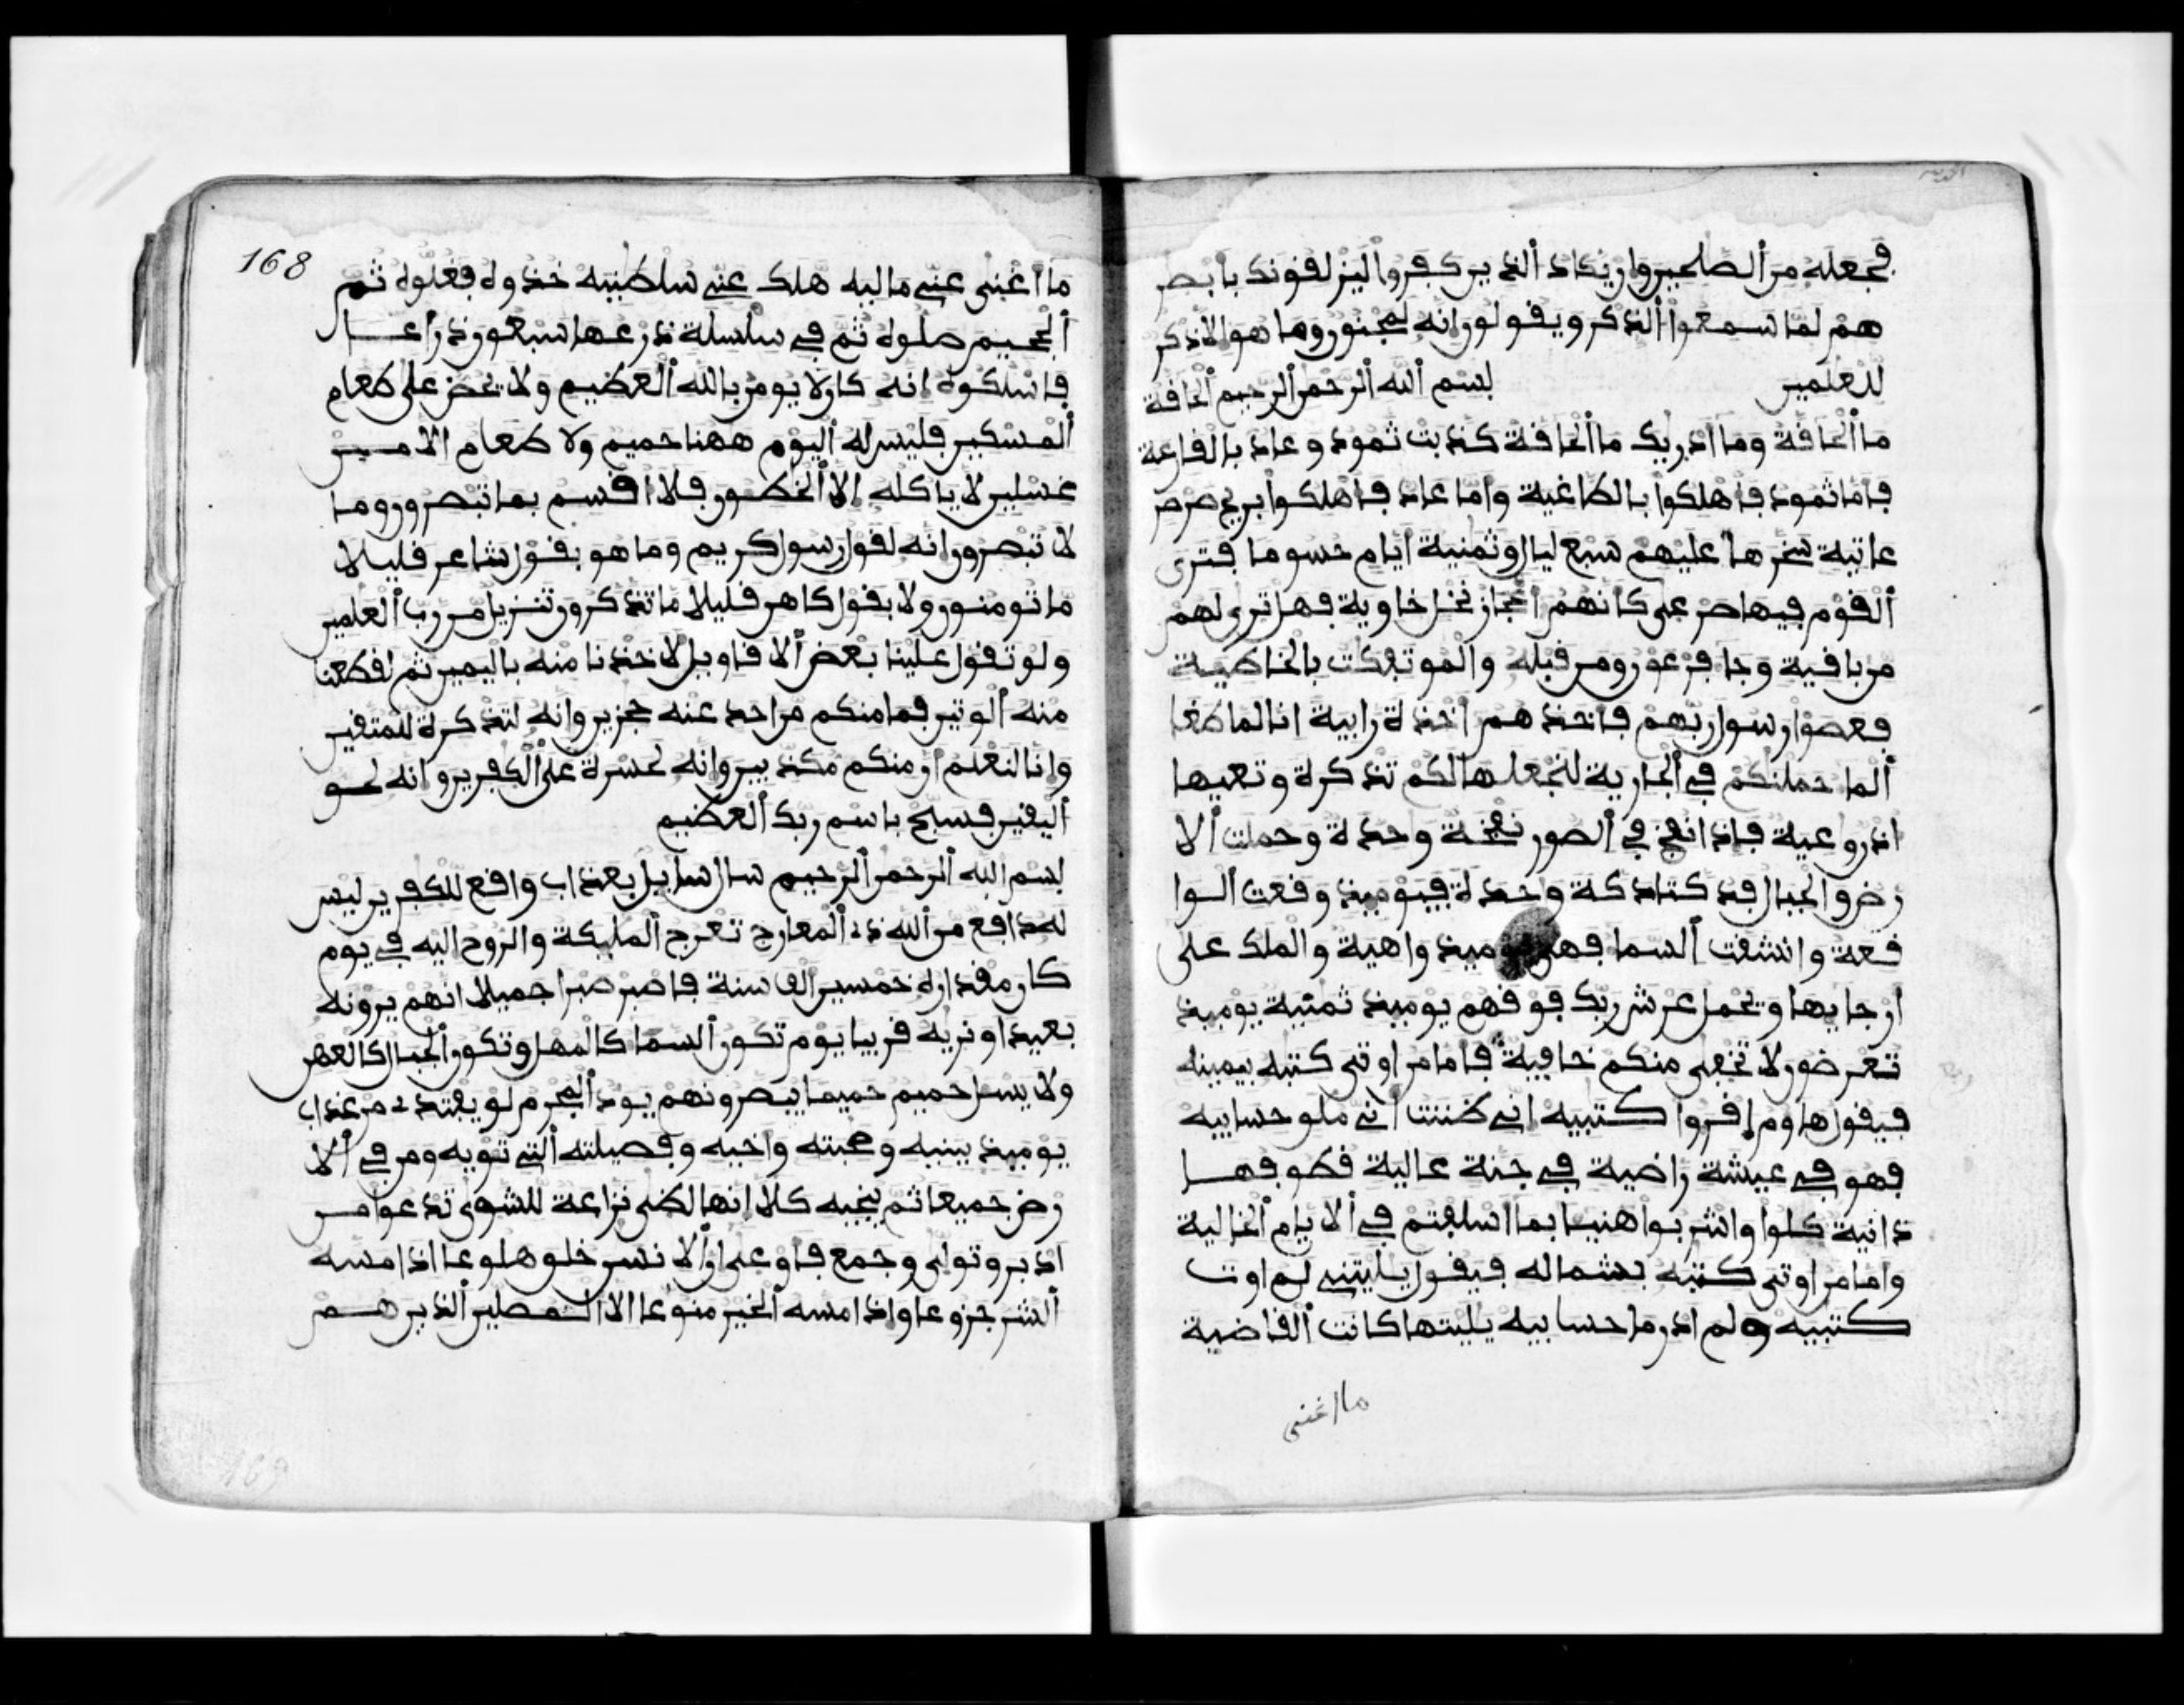 فجعله من الصلحين وان يكاد الذين كفروا ليزلقونك بابصر
هم لما سمعوا الذكر ويقولون انه لمجنون وما هو الا ذكر
للعلمين بسم الله الرحمن الرحيم الحاقة
ما الحاقة وما ادريك ما الحاقة كذبت ثمود وعاد بالقارعة
فاما ثمود فاهلكوا بالطاغية واما عاد فاهلكوا بريح صرصر
عاتية سخرها عليهم سبع ليال وثمنية ايام حسوما فترى
القوم فيها صرعى كانهم اعجاز نخل خاوية فهل ترى لهم
من باقية وجا فرعون ومن قبله والموتفكت بالخاطية
فعصوا رسول ربهم فاخذهم اخذة رابية انا لما طغا
الما حملنكم في الجارية لنجعلها لكم تذكرة وتعيها
اذن وعية فاذا نفخ في الصور نفخة وحدة وحملت الا
رض والجبال فدكتا دكة وحدة فيوميذ وقعت الوا
قعة وانشقت السما فهي يوميذ واهية والملك على
ارجايها ويحمل عرش ربك فوقهم يوميذ ثمنية يوميذ
تعرضون لا تخفى منكم خافية فاما من اوتى كتبه بيمينه
فيقول هاوم اقروا كتبيه اني ظننت اني ملق حسابيه
فهو في عيشة راضية في جنة عالية قطوفها
دانية كلوا واشربوا هنيا بما اسلفتم في الايام الخالية
واما من اوتى كتبه بشماله فيقول يليتنى لم اوت
كتبيه ولم ادر ما حسابيه يليتها كانت القاضية
ما اغنى
168
ما اغنى عني ماليه هلك عني سلطنيه خذوه فغلوه ثم
الجحيم صلوه ثم في سلسلة ذرعها سبعون ذراعا
فاسلكوه انه كان لا يومن بالله العظيم ولا يحض على طعام
المسكين فليس له اليوم ههنا حميم ولا طعام الا من
غسلين لا ياكله الا الخطون فلا اقسم بما تبصرون وما
لا تبصرون انه لقول رسول كريم وما هو بقول شاعر قليلا
ما تومنون ولا بقول كاهن قليلا ما تذكرون تنزيل من رب العلمين
ولو تقول علينا بعض الاقاويل لاخذنا منه باليمين ثم لقطعنا
منه الوتين فما منكم من احد عنه حجزين وانه لتذكرة للمتقين
وانا لنعلم ان منكم مكذبين وانه لحسرة على الكفرين وانه لحق
اليقين فسبح باسم ربك العظيم
بسم الله الرحمن الرحيم سال سايل بعذاب واقع للكفرين ليس
له دافع من الله ذي المعارج تعرج المليكة والروح اليه في يوم
كان مقداره خمسين الف سنة فاصبر صبرا جميلا انهم يرونه
بعيدا ونريه قريبا يوم تكون السما كالمهل وتكون الجبال كالعهن
ولا يسل حميم حميما يبصرونهم يود المجرم لو يفتدي من عذاب
يوميذ ببنيه وصحبته واخيه وفصيلته التي تويه ومن في الا
رض جميعا ثم ينجيه كلا انها لظى نزاعة للشوى تدعوا من
ادبر وتولى وجمع فاوعى ان الانسن خلق هلوعا اذا مسه
الشر جزوعا واذا مسه الخير منوعا الا المصلين الذين هم
169